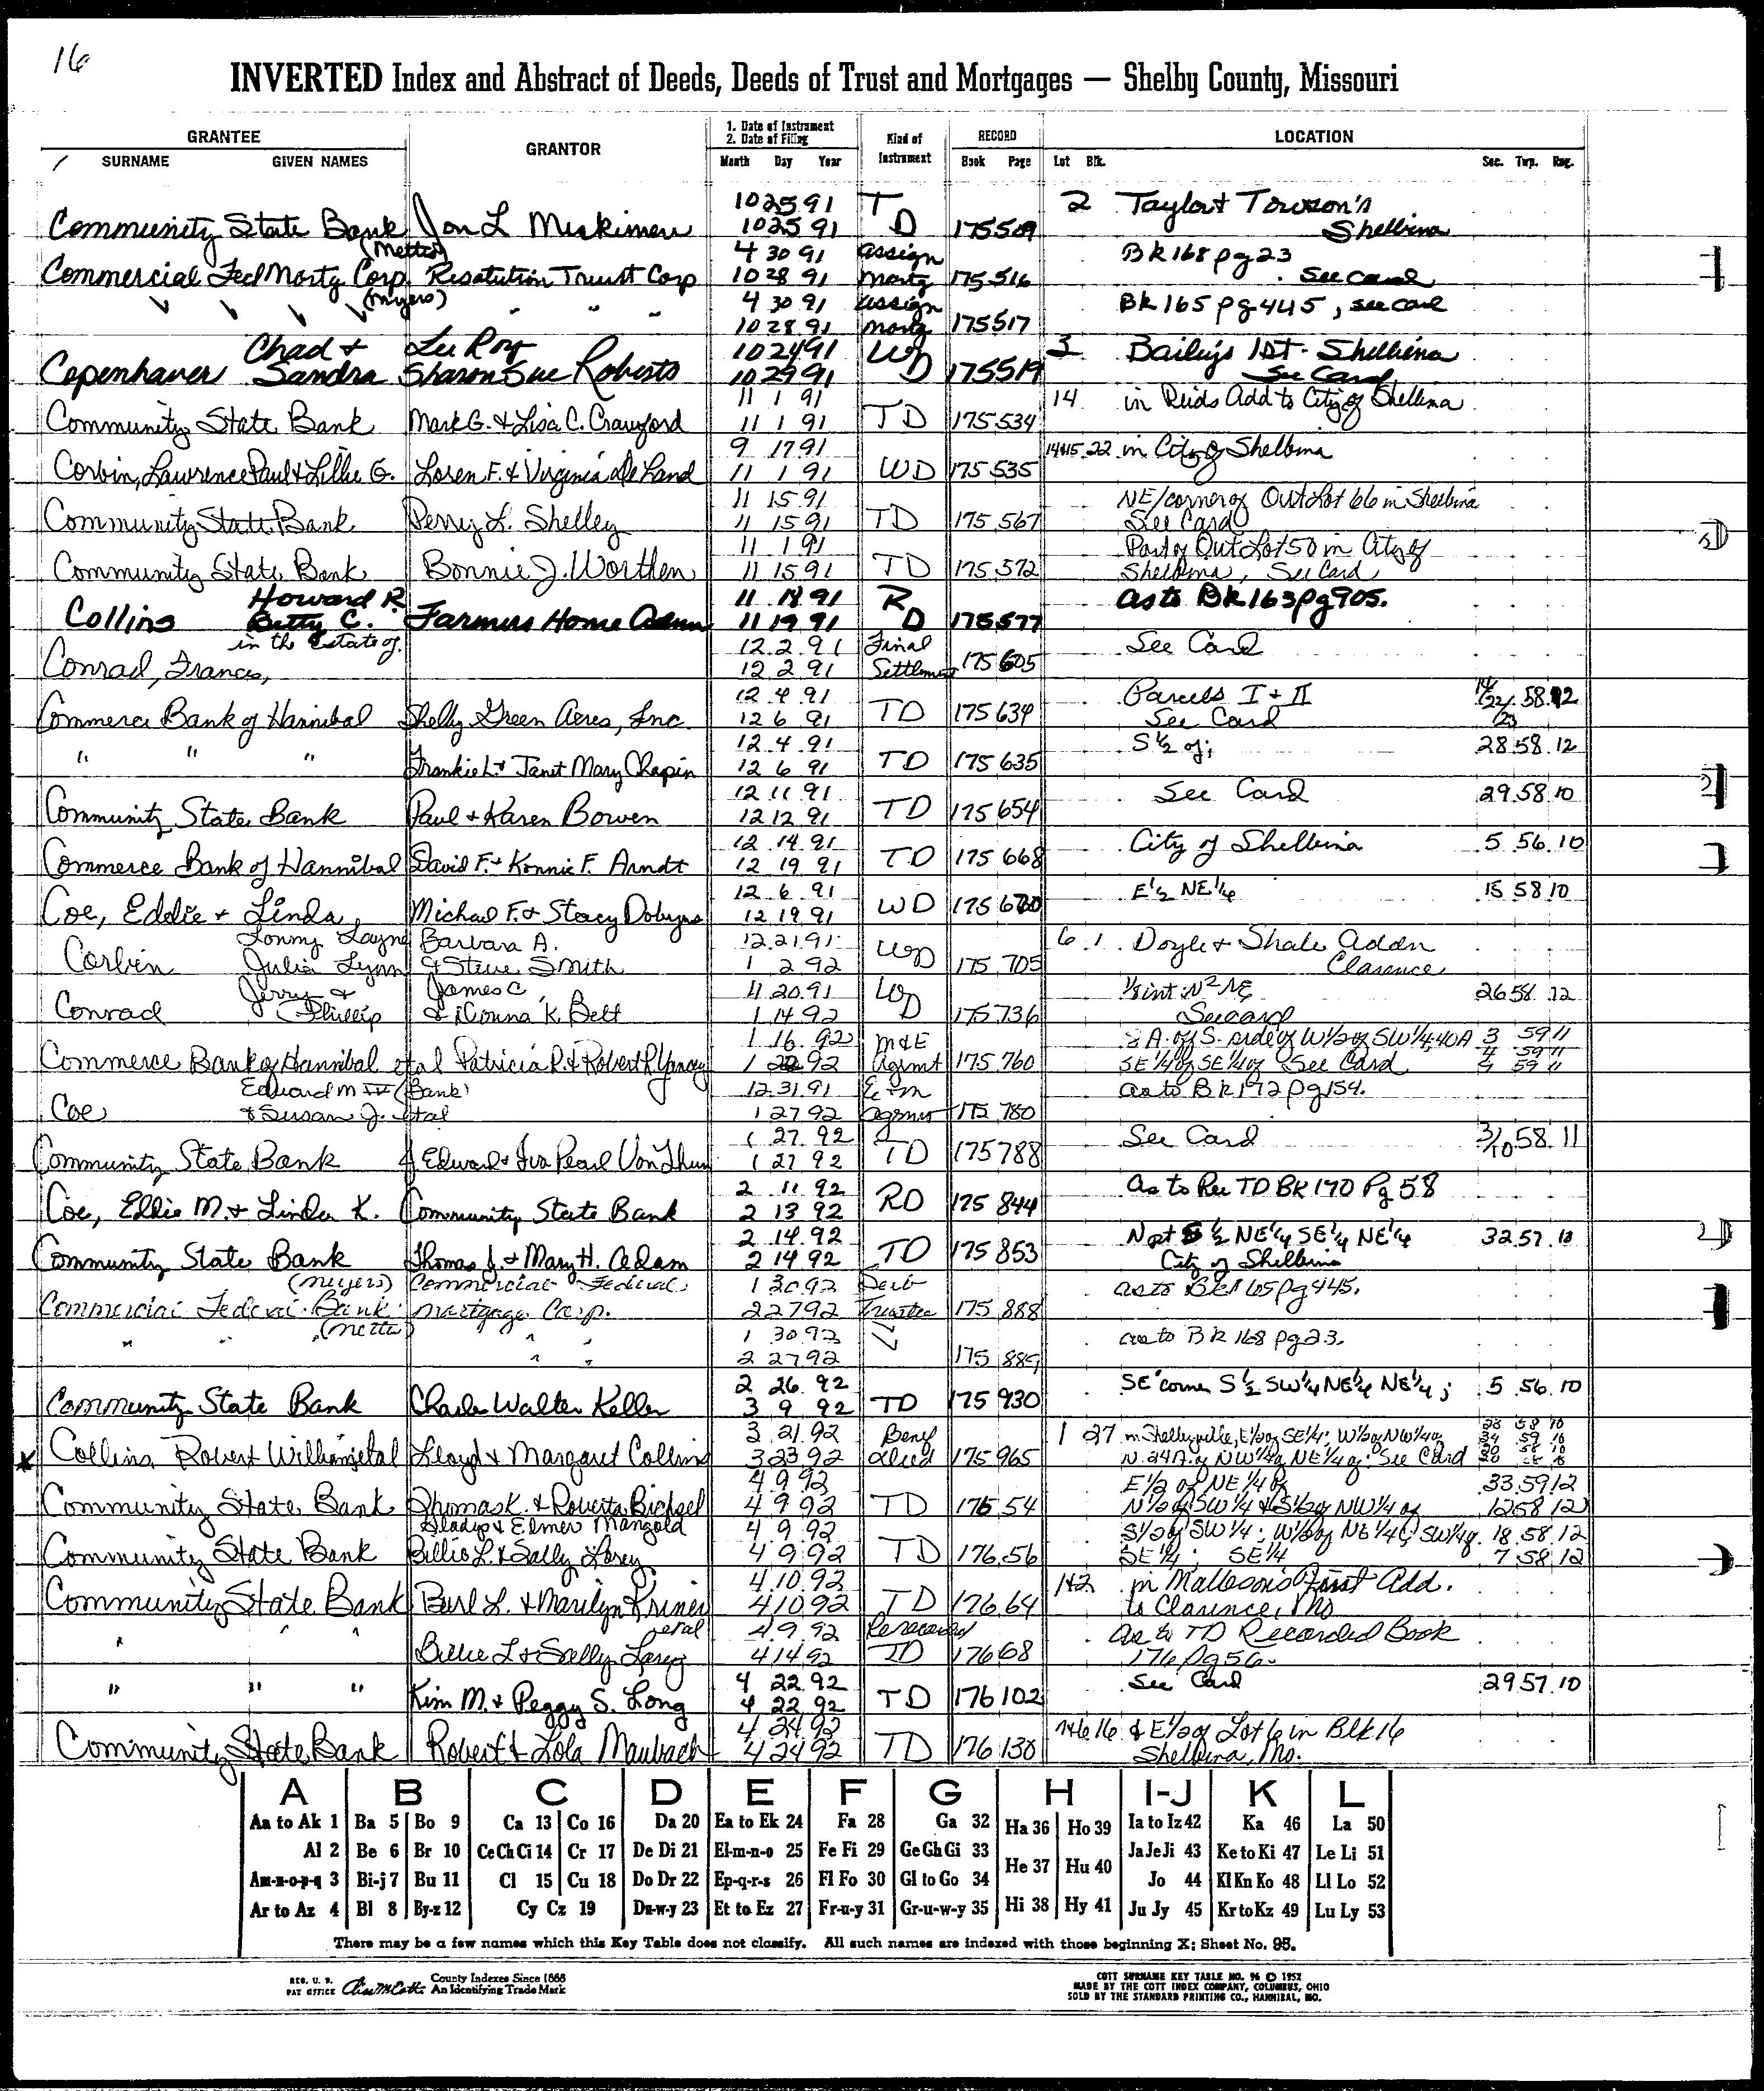 16
INVERTED Index and Abstract of Deeds, Deeds of Trust and Mortgages — Shelby County, Missouri
GRANTEE
SURNAME GIVEN NAMES
GRANTOR
1. Date of Instrument
2. Date of Filing
Month Day Year
Kind of
Instrument
RECORD
Book Page
LOCATION
Lot Blk.
Sec. Twp. Rng.
10 25 91 T 2 Taylor & Towson's
Community State Bank Jon L Miskimen 10 25 91 D 175 509 Shelbina
(Metter) 4 30 91 assign Bk 168 pg 23
Commercial Fed Mortg Corp. Resolution Trust Corp 10 28 91 Mortg 175 516 See card
(Myers) " " " 4 30 91 assign Bk 165 pg 445, see card
10 28 91 Mortg 175 517
Chad & Lee Roy 10 24 91 W 3 Bailey's 1st - Shelbina
Copenhaver Sandra Sharon Sue Roberts 10 29 91 D 175 519 See Card
11 1 91 14 in Reids Add to City of Shelbina
Community State Bank Mark G. & Lisa C. Crawford 11 1 91 TD 175 534
9 17 91 14&15 22 in City of Shelbina
Corbin, Lawrence Paul & Lillie G. Loren F. & Virginia DeLand 11 1 91 WD 175 535
11 15 91 NE/corner of Out Lot 66 in Shelbina
Community State Bank Perry L. Shelley 11 15 91 TD 175 567 See Card
11 1 91 Part of Out Lot 50 in City of
Community State Bank Bonnie J. Worthen 11 15 91 TD 175 572 Shelbina, See Card
Howard R. 11 18 91 R as to Bk 163 pg 905.
Collins Betty C. Farmers Home Adm 11 19 91 D 175 577
in the Estate of 12 2 91 Final See Card
Conrad, Frances, 12 2 91 Settlement 175 605
12 4 91 Parcels I & II 14/22/23 58 12
Commerce Bank of Hannibal Shelby Green Acres, Inc. 12 6 91 TD 175 634 See Card
12 4 91 S 1/2 of; 28 58 12
" " " Frankie L. & Janet Mary Chapin 12 6 91 TD 175 635
12 11 91 See Card 29 58 10
Community State Bank Paul & Karen Bowen 12 12 91 TD 175 654
12 14 91 City of Shelbina 5 56 10
Commerce Bank of Hannibal David F. & Konnie F. Arndt 12 19 91 TD 175 668
12 6 91 E 1/2 NE 1/4 15 58 10
Coe, Eddie & Linda Michael F. & Stacy Dobyns 12 19 91 WD 175 670
Lonny Layne Barbara A. 12 21 91 WD 6 1 Doyle & Shale Addn
Corbin Julia Lynn & Steve Smith 1 2 92 175 705 Clarence
Jerry & James C. 11 20 91 WD 1/8 int N2 NE 26 58 12
Conrad Phillip & Donna K. Belt 1 14 92 175 736 See card
1 16 92 M&E A. of S. side of W 1/2 of SW 1/4, 40A 3 59 11
Commerce Bank of Hannibal et al Patricia R. & Robert P. Yancey 1 22 92 Agrmt 175 760 SE 1/4 of SE 1/4 of See Card 4 59 11
Edward M III (Bank) 12 31 91 E & M as to Bk 172 pg 154.
Coe & Susan J. et al 1 27 92 agrmt 175 780
1 27 92 See Card 3/10 58 11
Community State Bank J. Edward & Iva Pearl VonThun 1 27 92 TD 175 788
2 11 92 As to Rec TD BK 170 Pg 58
Coe, Eddie M. & Linda K. Community State Bank 2 13 92 RD 175 844
2 14 92 N pt S 1/2 NE 1/4 SE 1/4 NE 1/4 32 57 10
Community State Bank Thomas J. & Mary H. Adam 2 14 92 TD 175 853 City of Shelbina
(Myers) Commercial Federal 1 30 92 as to Bk 165 pg 445.
Commercial Federal Bank Mortgage Corp. 2 27 92 Trustee 175 888
(Metter) 1 30 92 as to Bk 168 pg 23.
" " " " 2 27 92 175 889
2 26 92 SE corner S 1/2 SW 1/4 NE 1/4 NE 1/4; 5 56 10
Community State Bank Charles Walter Keller 3 9 92 TD 175 930
3 21 92 Benef 1 27 in Shelbyville, E 1/2 of SE 1/4; W 1/2 of NW 1/4 of
x Collins Robert William et al Lloyd & Margaret Collins 3 23 92 Deed 175 965 N. 24A. of NW 1/4 of NE 1/4 of: See Card
4 9 92 E 1/2 of NE 1/4 of 33 59 12
Community State Bank Thomas K. & Roberta Bichsel 4 9 92 TD 176 54 N 1/2 of SW 1/4 & S 1/2 of NW 1/4 of 12 58 12
Gladys & Elmer Mangold 4 9 92 S 1/2 of SW 1/4; W 1/2 of NE 1/4; SW 1/4 of 18 58 12
Community State Bank Billie L. & Sally Lorey 4 9 92 TD 176 56 SE 1/4; SE 1/4 7 58 12
4 10 92 1&2 in Malleson's First Add.
Community State Bank Burl L. & Marilyn Kriner 4 10 92 TD 176 64 to Clarence, Mo
et al 4 9 92 Rerecorded As to TD Recorded Book
" " " Billie L & Sally Lorey 4 14 92 TD 176 68 176 Pg 56.
4 22 92 See Card 29 57 10
" " " Kim M. & Peggy S. Long 4 22 92 TD 176 102
4 24 92 & E 1/2 of Lot 6 in Blk 16
Community State Bank Robert & Lola Maubach 4 24 92 TD 176 130 Shelbina, Mo.
A B C D E F G H I-J K L
Aa to Ak 1 Ba 5 Bo 9 Ca 13 Co 16 Da 20 Ea to Ek 24 Fa 28 Ga 32 Ha 36 Ho 39 Ia to Iz 42 Ka 46 La 50
Al 2 Be 6 Br 10 Ce Ch Ci 14 Cr 17 De Di 21 El-m-n-o 25 Fe Fi 29 Ge Gh Gi 33 He 37 Hu 40 Ja Je Ji 43 Ke to Ki 47 Le Li 51
Am-n-o-p-q 3 Bi-j 7 Bu 11 Cl 15 Cu 18 Do Dr 22 Ep-q-r-s 26 Fl Fo 30 Gl to Go 34 Jo 44 Kl Kn Ko 48 Ll Lo 52
Ar to Az 4 Bl 8 By-z 12 Cy Cz 19 Du-w-y 23 Et to Ez 27 Fr-u-y 31 Gr-u-w-y 35 Hi 38 Hy 41 Ju Jy 45 Kr to Kz 49 Lu Ly 53
There may be a few names which this Key Table does not classify. All such names are indexed with those beginning X; Sheet No. 95.
REG. U. S. PAT OFFICE
County Indexes Since 1888
An Identifying Trade Mark
COTT SURNAME KEY TABLE NO. 96 © 1952
MADE BY THE COTT INDEX COMPANY, COLUMBUS, OHIO
SOLD BY THE STANDARD PRINTING CO., HANNIBAL, MO.